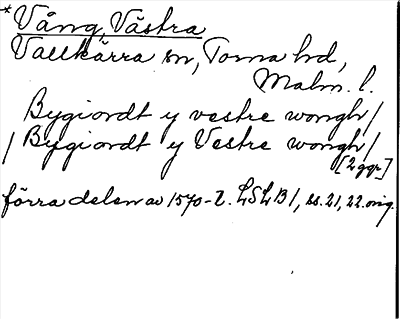 *Vång, Västra
Vallkärra sn, Torna hd,
Malm. l.
Bygiordt y vestre wongh/
/Bygiordt y Vestre wongh/
[2 ggr]
förra delen av 1570-t. LSLB 1, ss. 21, 22. orig.